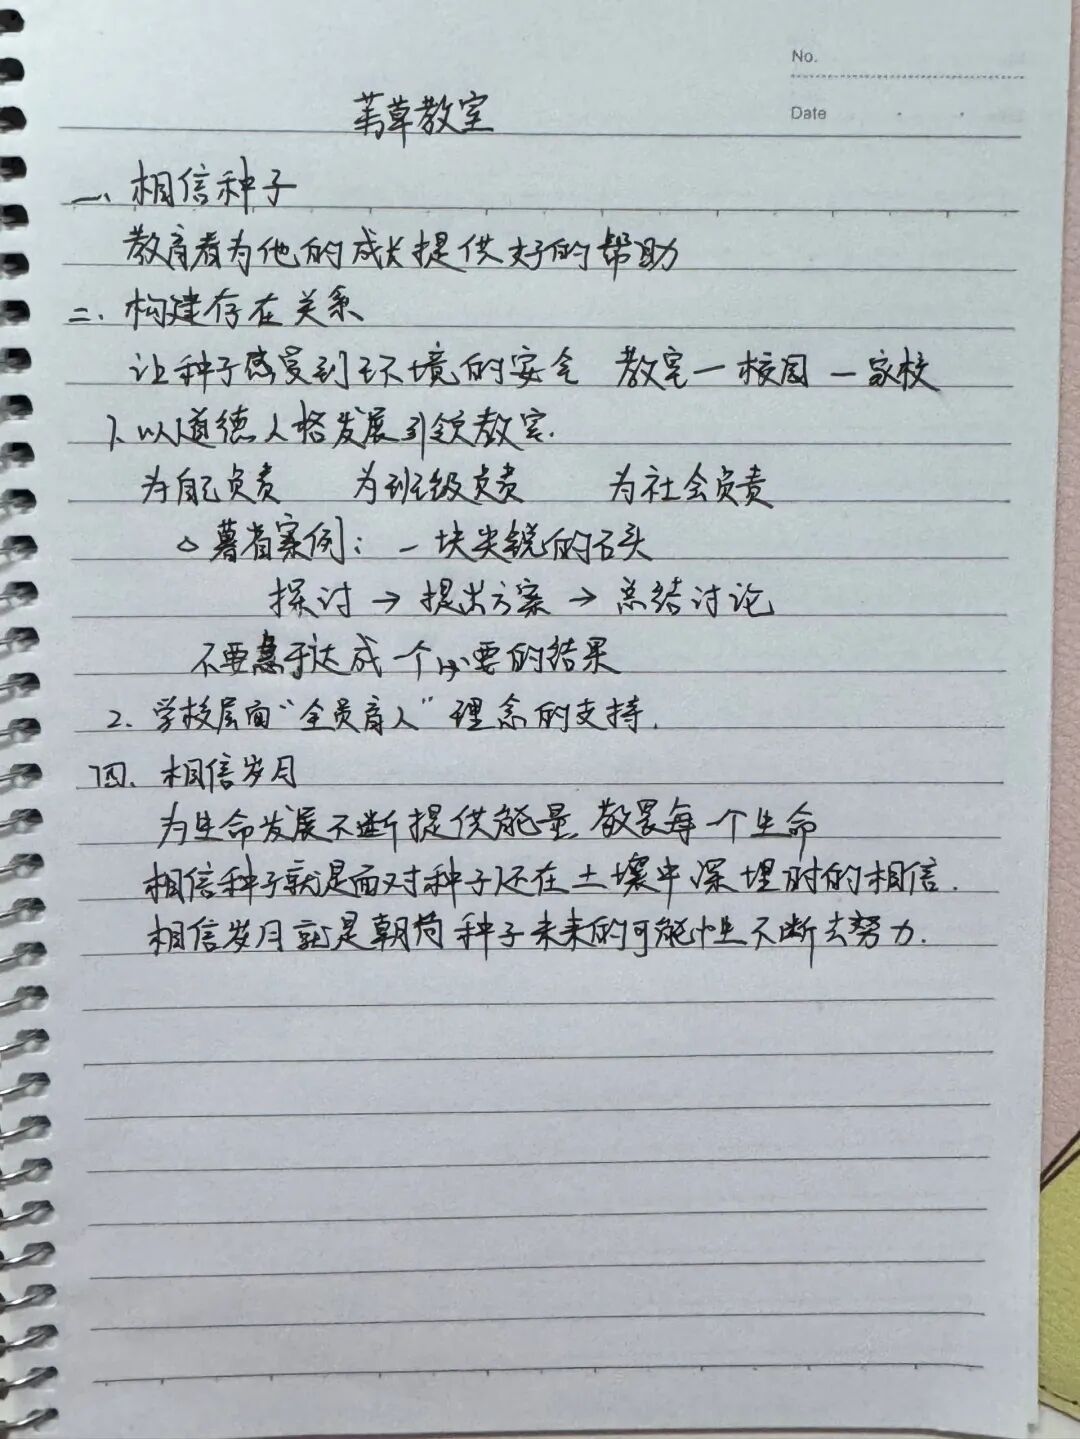 No.
Date
苇草教室
一、相信种子
教育者为他的成长提供好的帮助
二、构建存在关系
让种子感受到环境的安全 教室一校园一家校
1、以道德人格发展引领教室.
为自己负责 为班级负责 为社会负责
△ 薯省案例：一块尖锐的石头
探讨→提出方案→总结讨论
不要急于达成一个必要的结果
2、学校层面“全员育人”理念的支持.
四、相信岁月
为生命发展不断提供能量,敬畏每一个生命
相信种子就是面对种子还在土壤中深埋时的相信.
相信岁月就是朝向种子未来的可能性不断去努力.